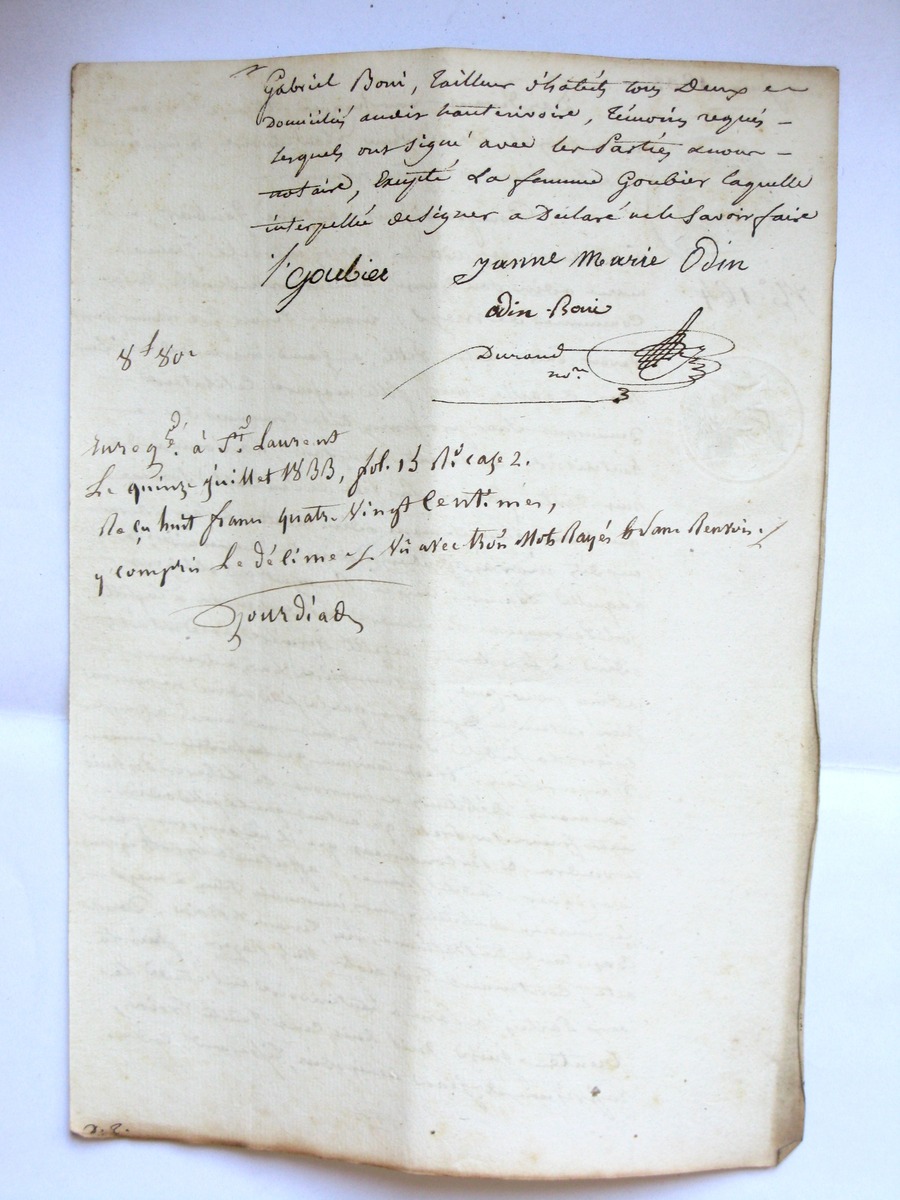 Gabriel Boni, tailleur d'habits tous Deux en
Domiciliés audit hauterivoire, témoins requis –
lesquels ont signé avec les Parties & nous –
notaire, Excepté La femme Goubier laquelle
interpellée de signer a Déclaré ne le Savoir faire
Goubier Janne Marie Odin
odin Boni
8f 80c
Durand
nore
Enregé. à St. Laurent
Le quinze juillet 1833, fol. 15 Ro. case 2.
Reçu huit francs quatre vingt Centimes,
y compris Le décime / Vu avec trois Mots Rayés & sans Renvois. /
Gourdiat